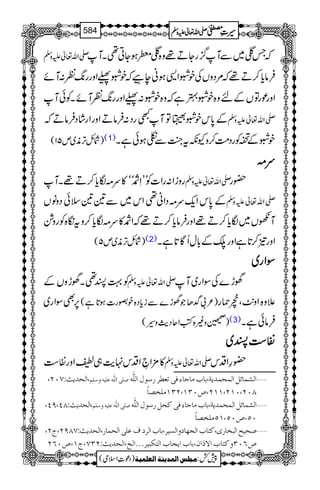 سیرتِ مصطفیٰ صلی اللہ تعالیٰ علیہ وسلم
584
کہ جس گلی میں سے آپ گزر جاتے تھے وہ گلی معطر ہو جاتی تھی۔ آپ صلی اللہ تعالیٰ علیہ وسلم
فرمایا کرتے تھے کہ مردوں کی خوشبو ایسی ہونی چاہے کہ خوشبو پھیلے اور رنگ نظر نہ آئے
اور عورتوں کے لئے وہ خوشبو بہتر ہے کہ وہ خوشبو نہ پھیلے اور رنگ نظر آئے۔ کوئی آپ
صلی اللہ تعالیٰ علیہ وسلم کے پاس خوشبو بھیجتا تو آپ کبھی رد نہ فرماتے اور ارشاد فرماتے کہ
خوشبو کے تحفہ کو رد مت کرو کیونکہ یہ جنت سے نکلی ہوئی ہے۔ (1) (شمائل ترمذی ص۱۵)
سرمہ
حضور صلی اللہ تعالیٰ علیہ وسلم روزانہ رات کو ’’اِثْمِد‘‘ کا سرمہ لگایا کرتے تھے۔ آپ
صلی اللہ تعالیٰ علیہ وسلم کے پاس ایک سرمہ دانی تھی اس میں سے تین تین سلائی دونوں
آنکھوں میں لگایا کرتے تھے اور فرمایا کرتے تھے کہ اِثمد کا سرمہ لگایا کرو یہ نگاہ کو روشن
اور تیز کرتا ہے اور پلک کے بال اُگاتا ہے۔ (2) (شمائل ترمذی ص۵)
سواری
گھوڑے کی سواری آپ صلی اللہ تعالیٰ علیہ وسلم کو بہت پسند تھی۔ گھوڑوں کے
علاوہ اونٹ، خچر، حمار (عربی گدھا جو گھوڑے سے زیادہ خوبصورت ہوتا ہے) پر بھی سواری
فرمائی ہے۔ (3) (صحیحین وغیرہ کتب احادیث و سیر)
نفاست پسندی
حضورِ اقدس صلی اللہ تعالیٰ علیہ وسلم کا مزاجِ اقدس نہایت ہی لطیف اور نفاست
الشمائل المحمدیۃ، باب ماجاء فی تعطر رسول اللہ صلی اللہ علیہ وسلم، الحدیث: ۲۰۷،
۲۰۸، ۲۱۰، ۲۱۱، ص۱۳۰، ۱۳۲ ملخصاً
الشمائل المحمدیۃ، باب ماجاء فی کحل رسول اللہ صلی اللہ علیہ وسلم، الحدیث: ۴۸، ۴۹،
۵۰، ص۵۰، ۵۱ ملخصاً
صحیح البخاری، کتاب الجھاد والسیر، باب الردف علی الحمار، الحدیث: ۲۹۸۷، ج۲،
ص۳۰۶ و کتاب الاذان، باب ایجاب التکبیر...الخ، الحدیث: ۷۳۲، ج۱، ص۲۶۰
پیش کش: مجلس المدینۃ العلمیۃ (دعوتِ اسلامی)